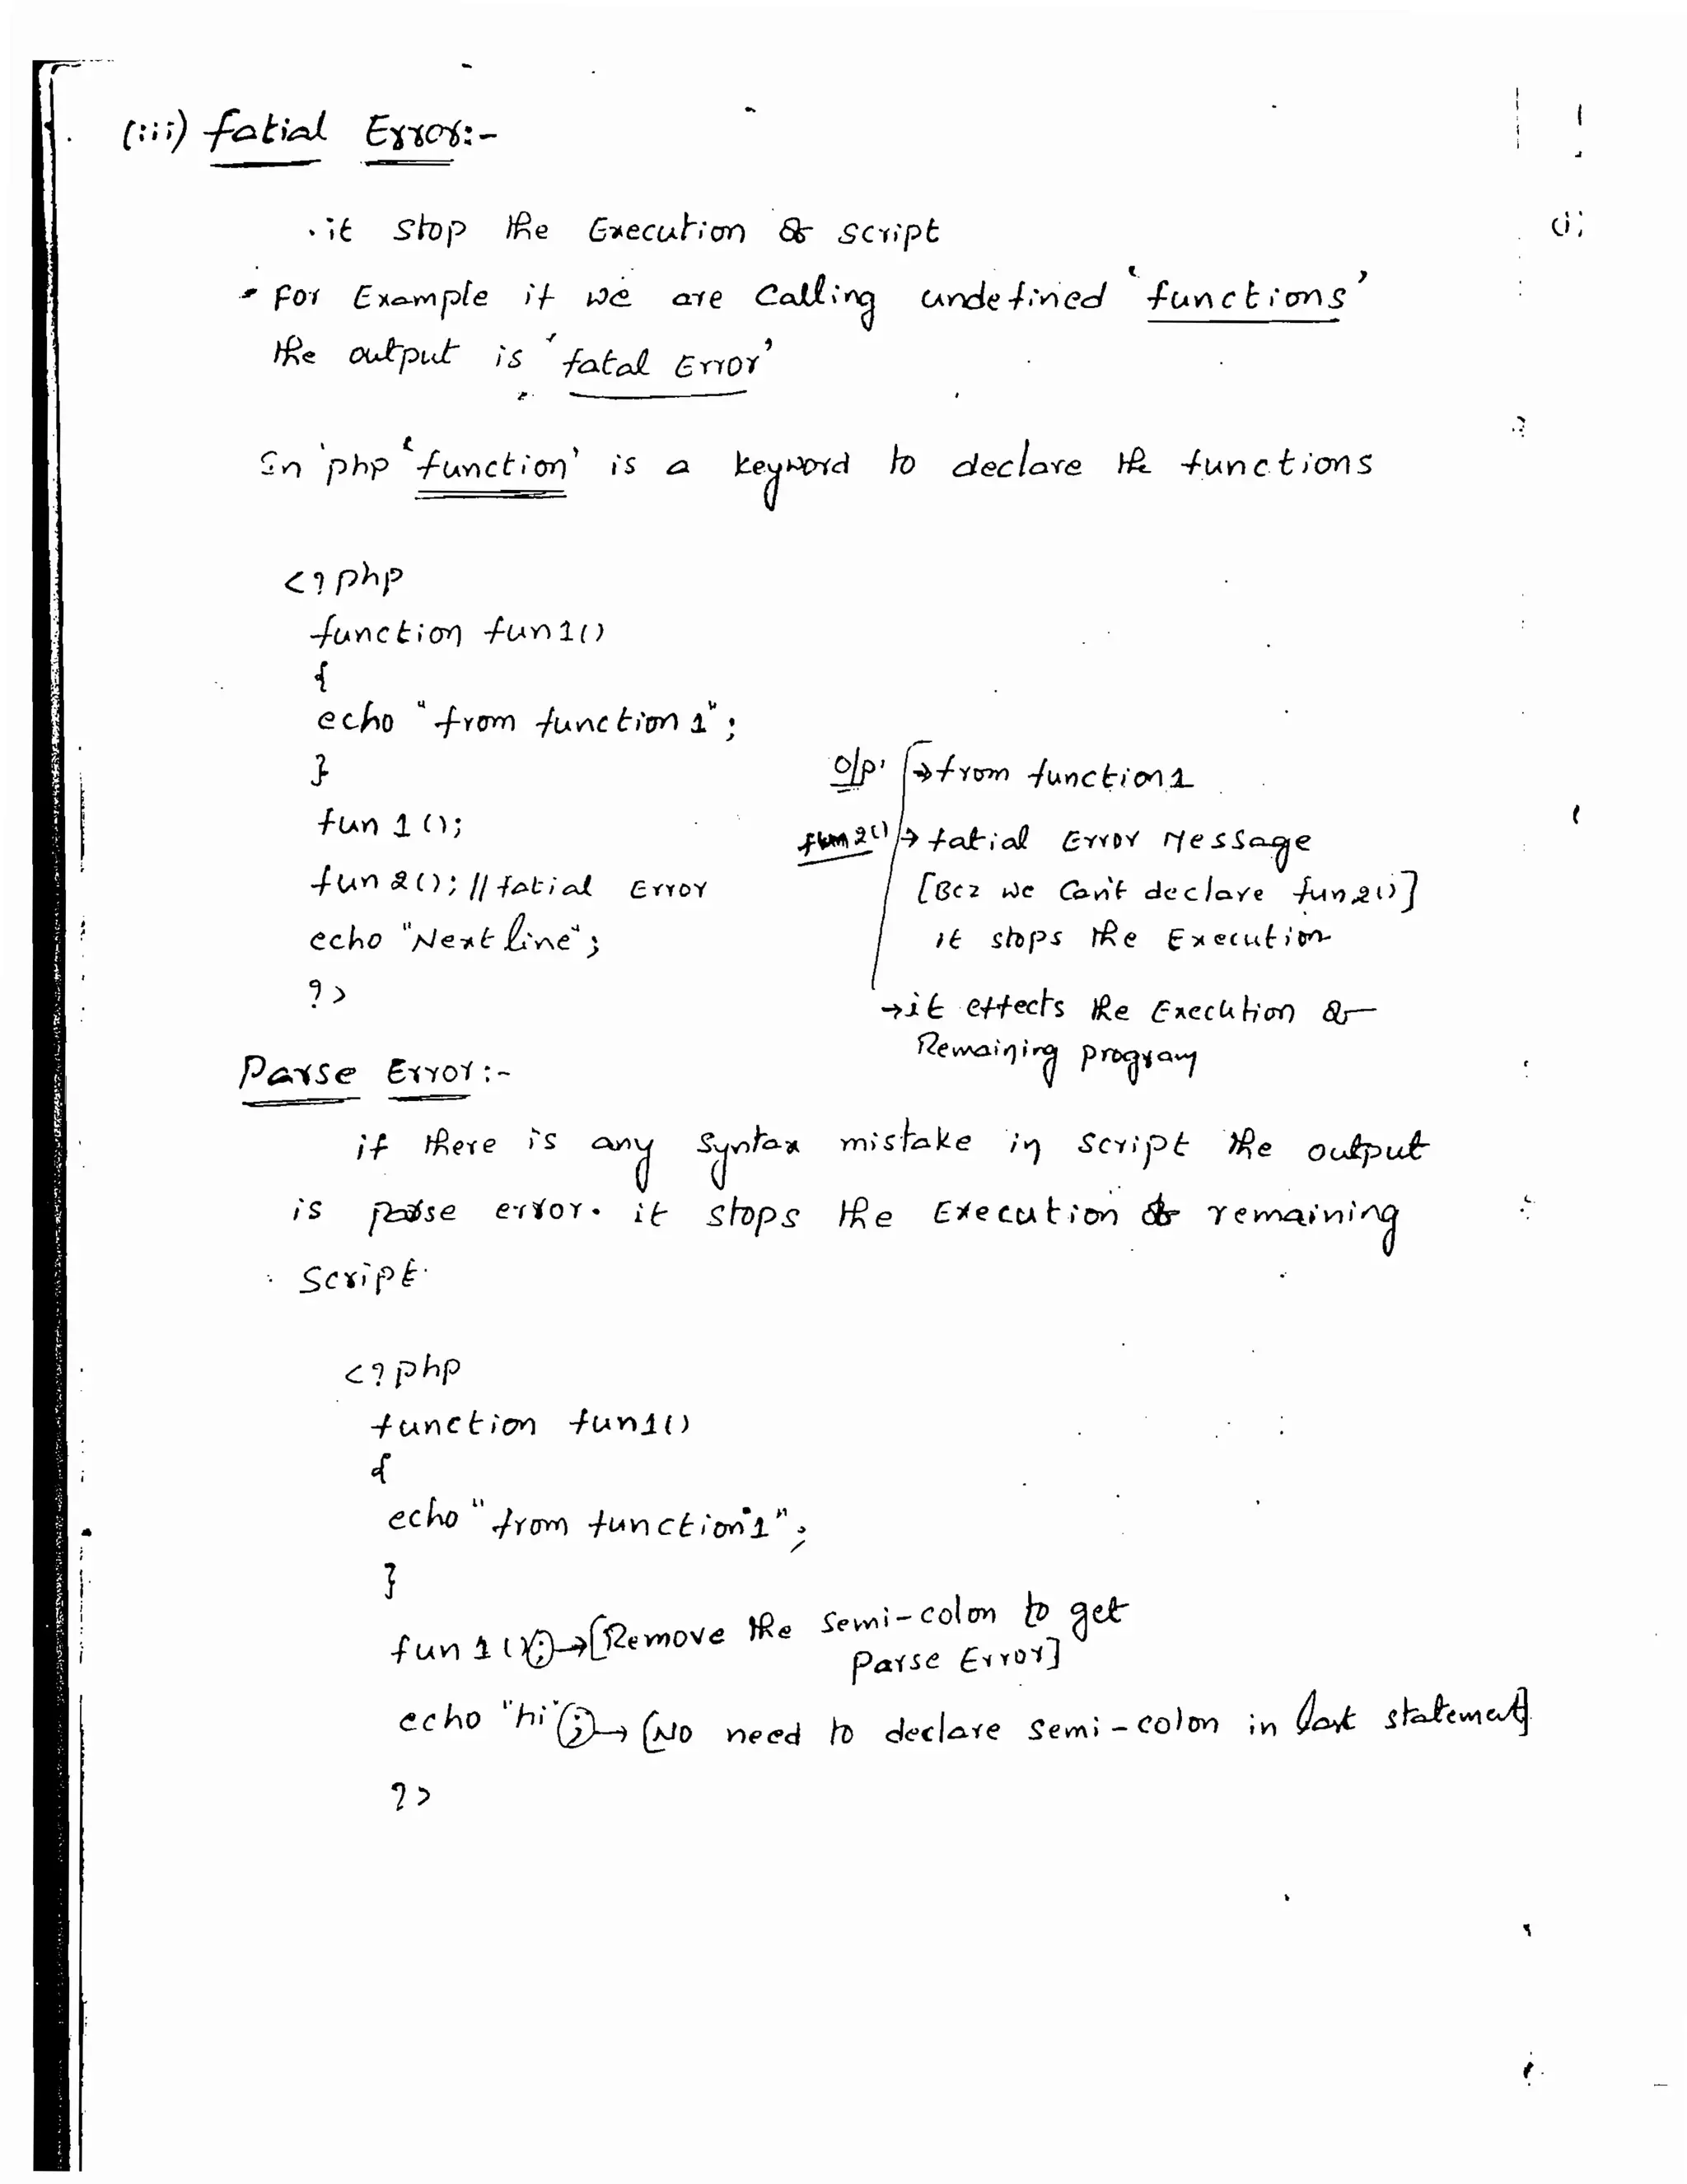 (iii) fatial Error:-
. it stop the Execution of script
• For Example if we are Calling undefined 'functions'
the output is 'fatal Error'
In 'php 'function' is a keyword to declare the functions
<?php
function fun1()
{
echo "from function 1";
}
fun 1 ();
fun 2(); // fatial Error
echo "Next line";
?>
O/p' →from function 1
fun 2() → fatial Error Message
[Bcz we Can't declare fun2()]
it stops the Execution
→it effects the Execution of
Remaining program
Parse Error :-
if there is any Syntax mistake in script the output
is parse error. it stops the Execution of remaining
Script.
<?php
function fun1()
{
echo "from function 1";
}
fun 1(); → [Remove the Semi-colon to get
Parse Error]
echo "hi"; → [No need to declare Semi-colon in last statement]
?>
(i)